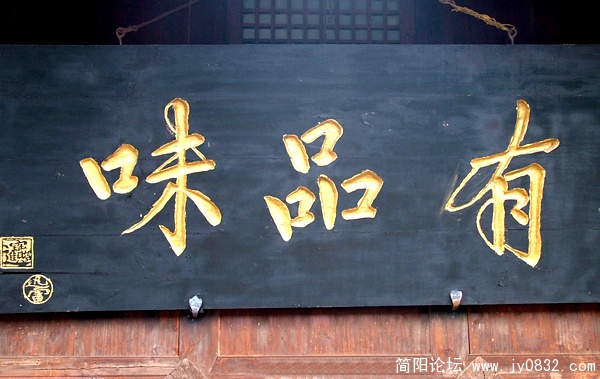 有品味
简阳论坛 www.jy0832.com